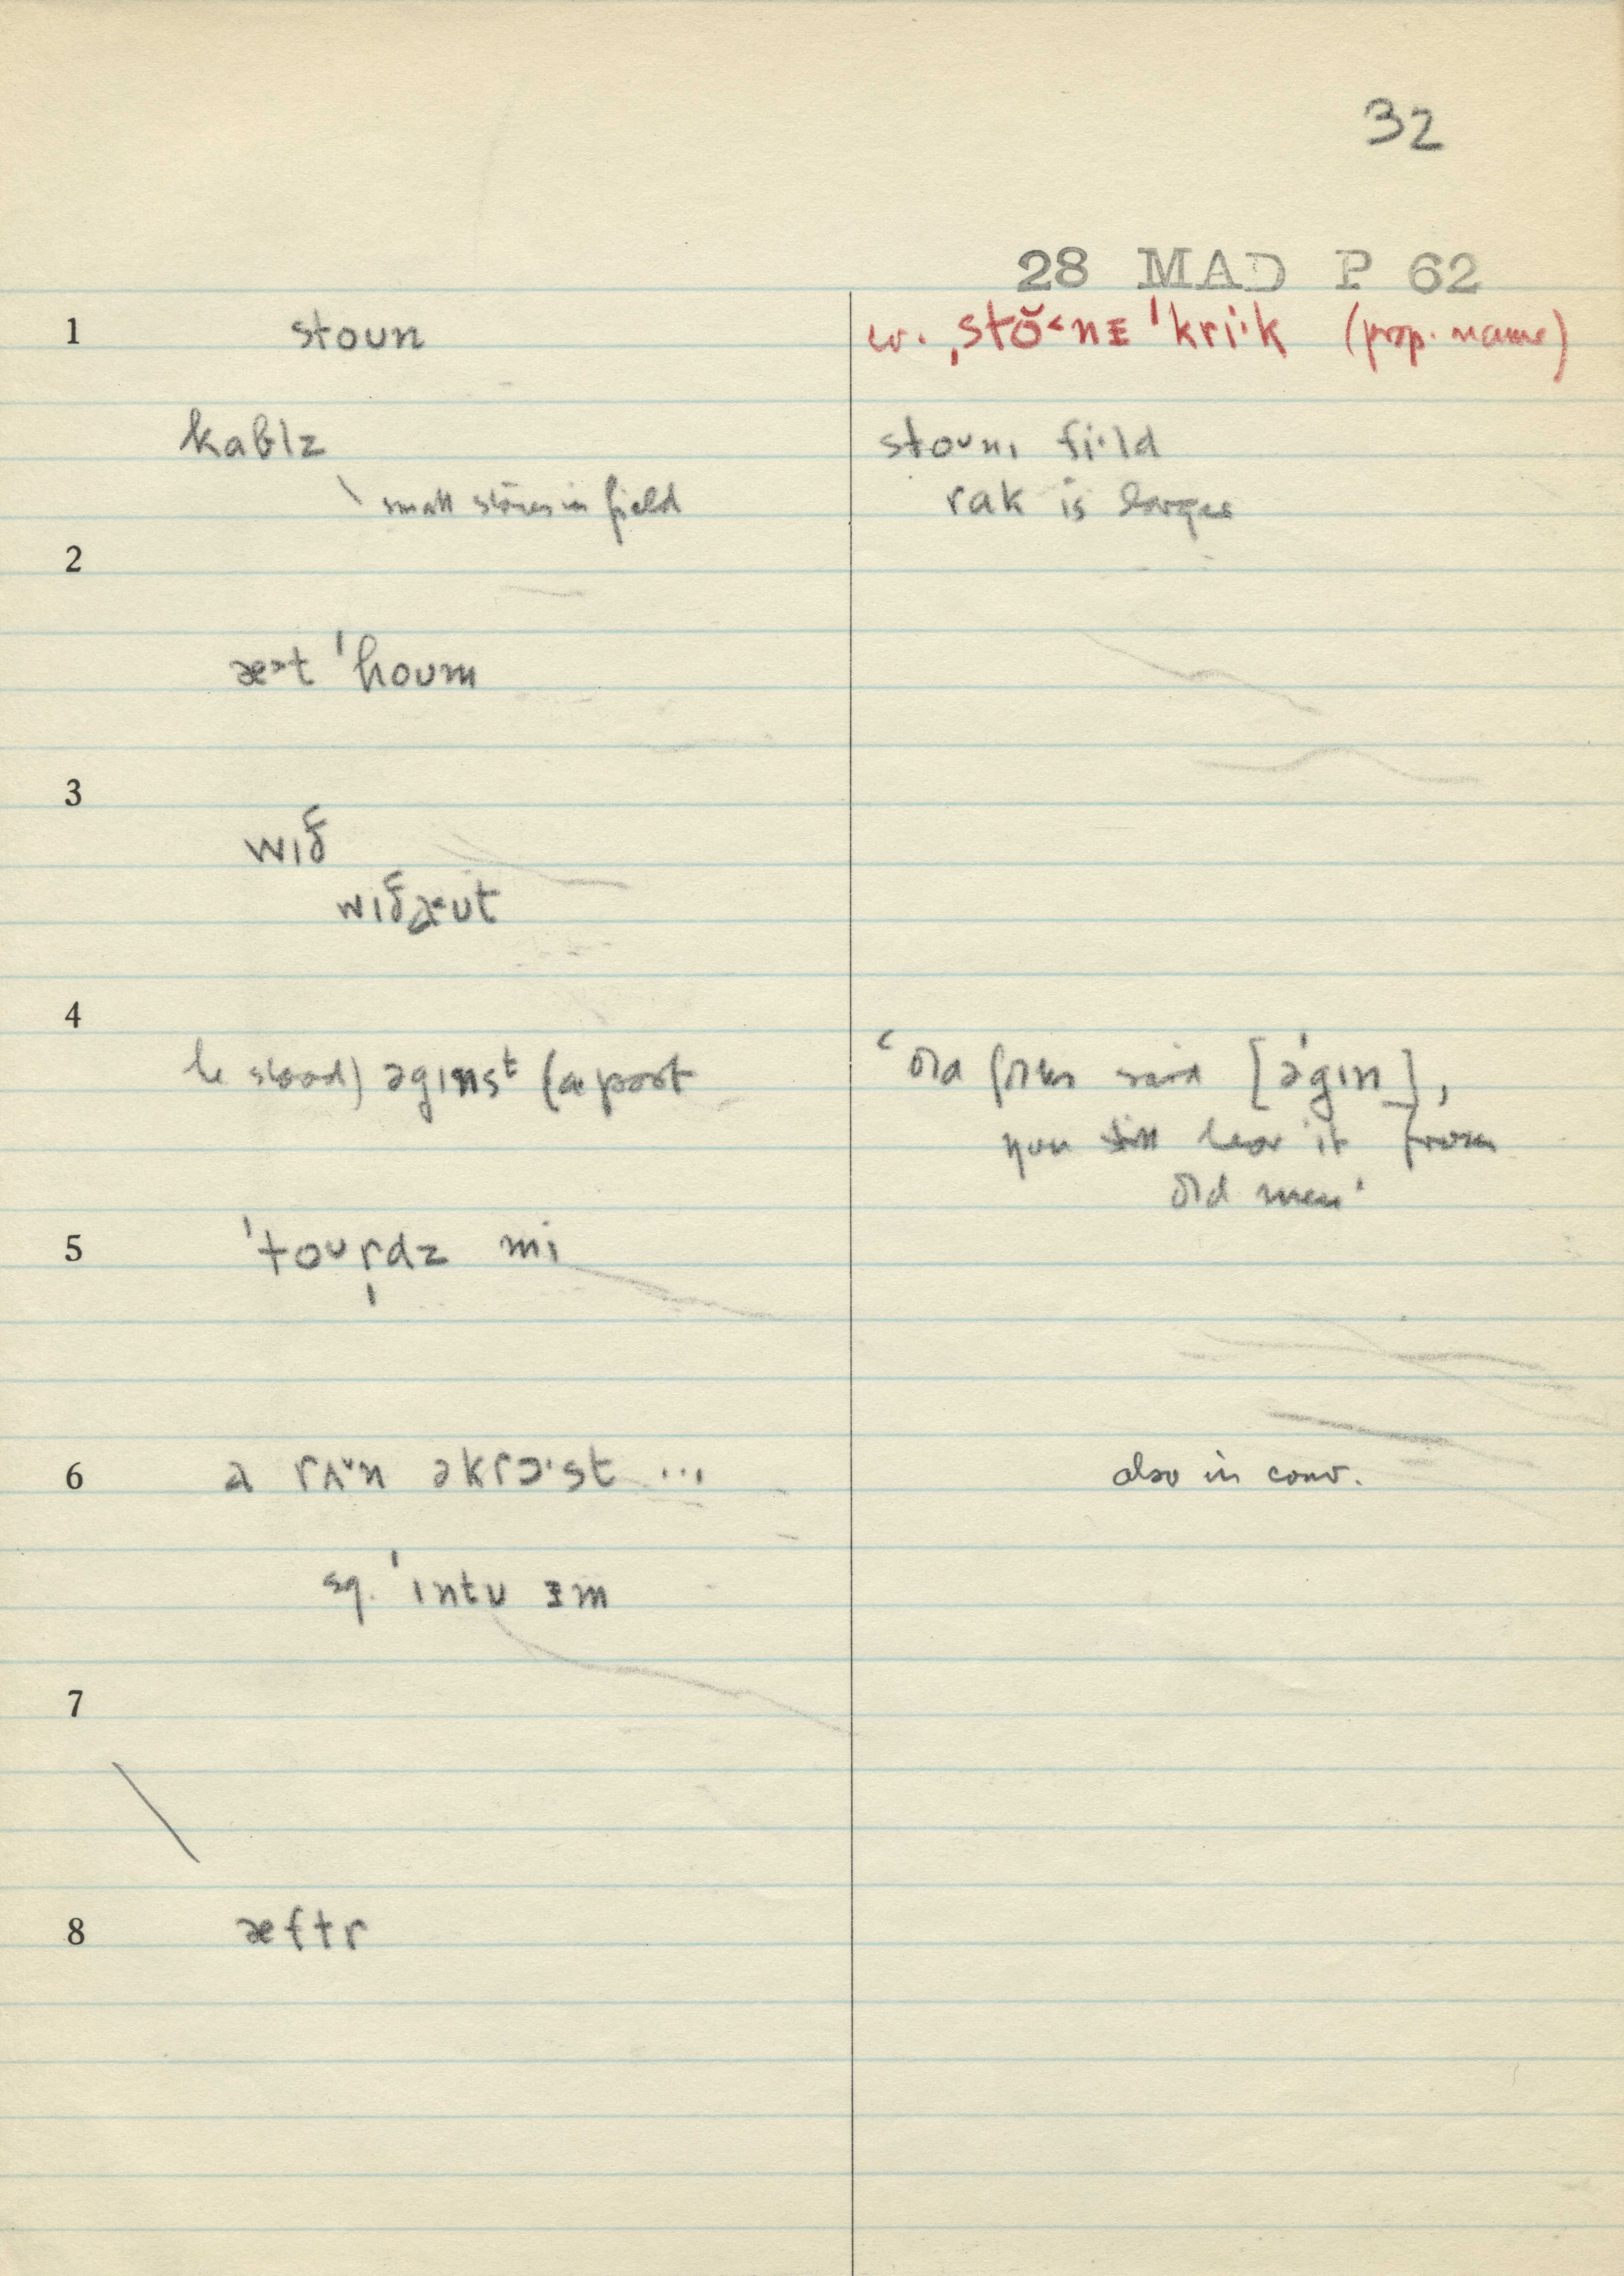 32
28 MAD P 62
1 stoun cv. ˌstŏ˂nᵻ ˈkri·k (prop. name)
kablz stoʊnɪ fi·ld
\ small stones in field rak is larger
2
æ˃t ˈhoʊm
3
wɪð
wɪðæ˂ʊt
4
he stood) əgɪnsᵗ (a post ‘old folks said [əˈgɪn],
you still hear it from
old men’
5 ˈtoʊr̩dz mi
6 a rʌ˅n əkrɔ·st ... also in conv.
sq. ˈɪntʊ ᵻm
7
8 æftr